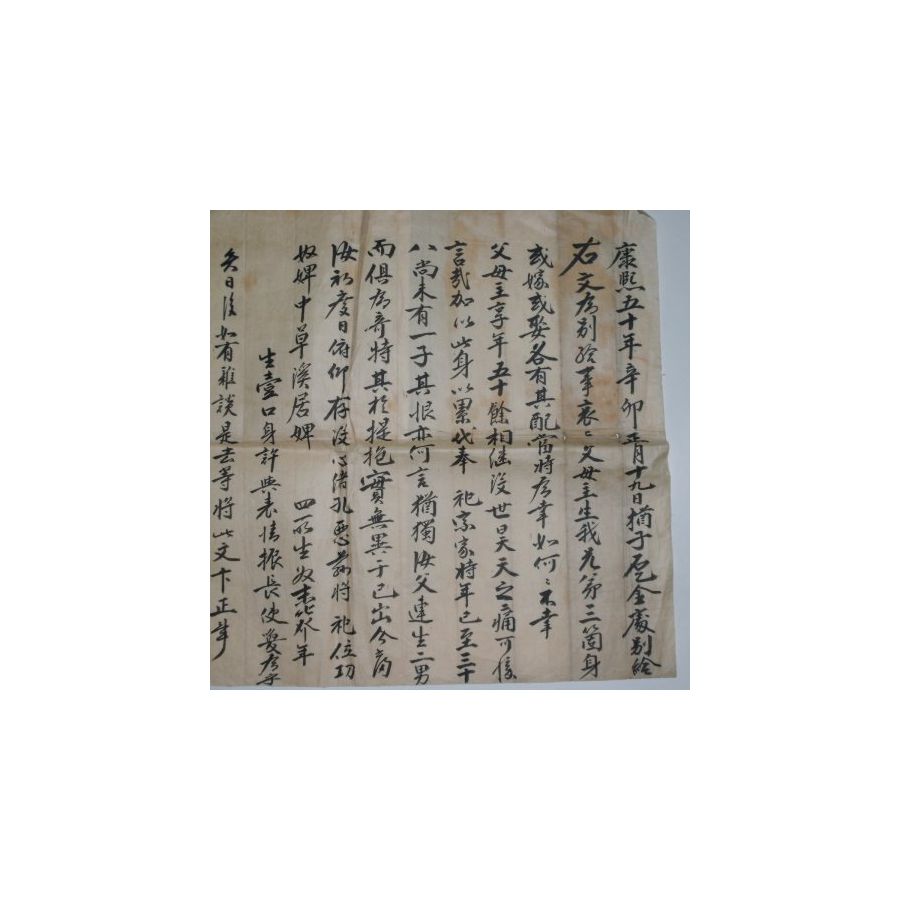 康熙五十年辛卯正月十九日猶子 金 處別給
右文爲別給事哀〻父母主生我兄弟三箇身
或嫁或娶各有其配當將爲幸如何〻不幸
父母主享年五十餘相継沒世昊天之痛可復
言哉加以此身以累代奉 祀宗家將年已至三十
八尚未有一子其恨亦何言猶獨汝父連生二男
而俱爲奇特其於提抱實無異于己出今爲
汝初度日俯仰存沒心緖孔悪 將 祀位功
奴婢中草溪居婢 四所生奴 年
生壹口身許與表情振長使 爲乎
矣日後如有雜談是去等將此文卞正事